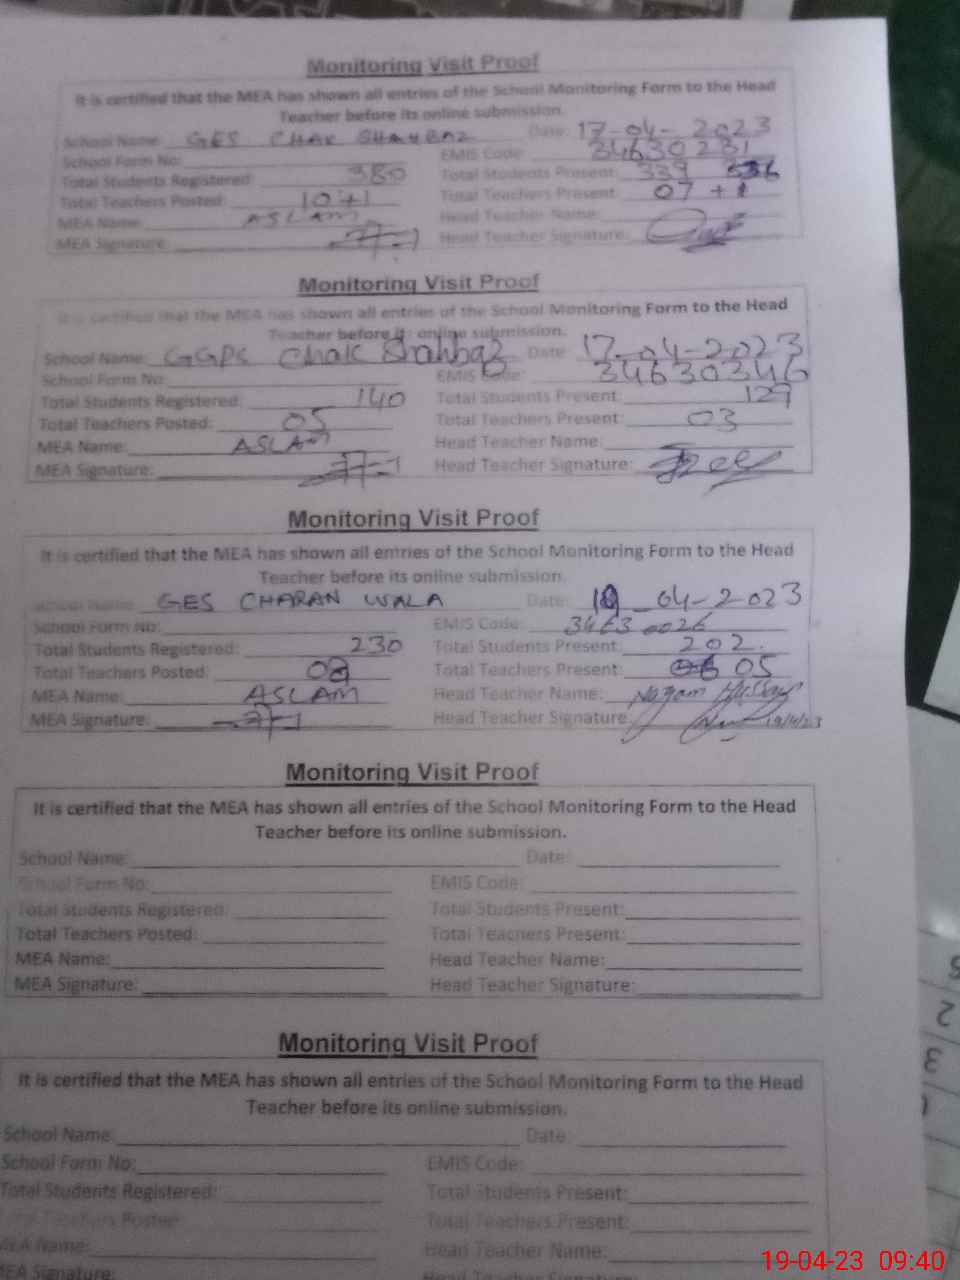 Monitoring Visit Proof
It is certified that the MEA has shown all entries of the School Monitoring Form to the Head
Teacher before its online submission.
School Name: GES CHAK SHAHBAZ Date: 17-04-2023
School Form No: EMIS Code: 34630231
Total Students Registered: 380 Total Students Present: 339 336
Total Teachers Posted: 10+1 Total Teachers Present: 07+1
MEA Name: ASLAM Head Teacher Name:
MEA Signature: Head Teacher Signature:
Monitoring Visit Proof
It is certified that the MEA has shown all entries of the School Monitoring Form to the Head
Teacher before its online submission.
School Name: GGPS Chak Shahbaz Date: 17-04-2023
School Form No: EMIS Code: 34630346
Total Students Registered: 140 Total Students Present: 127
Total Teachers Posted: 05 Total Teachers Present: 03
MEA Name: ASLAM Head Teacher Name:
MEA Signature: Head Teacher Signature:
Monitoring Visit Proof
It is certified that the MEA has shown all entries of the School Monitoring Form to the Head
Teacher before its online submission.
School Name: GES CHARAN WALA Date: 19-04-2023
School Form No: EMIS Code: 34630026
Total Students Registered: 230 Total Students Present: 202
Total Teachers Posted: 08 Total Teachers Present: 05
MEA Name: ASLAM Head Teacher Name:
MEA Signature: Head Teacher Signature: 19/4/23
Monitoring Visit Proof
It is certified that the MEA has shown all entries of the School Monitoring Form to the Head
Teacher before its online submission.
School Name: Date:
School Form No: EMIS Code:
Total Students Registered: Total Students Present:
Total Teachers Posted: Total Teachers Present:
MEA Name: Head Teacher Name:
MEA Signature: Head Teacher Signature:
Monitoring Visit Proof
It is certified that the MEA has shown all entries of the School Monitoring Form to the Head
Teacher before its online submission.
School Name: Date:
School Form No: EMIS Code:
Total Students Registered: Total Students Present:
Total Teachers Posted: Total Teachers Present:
MEA Name: Head Teacher Name:
MEA Signature: Head Teacher Signature:
19-04-23 09:40